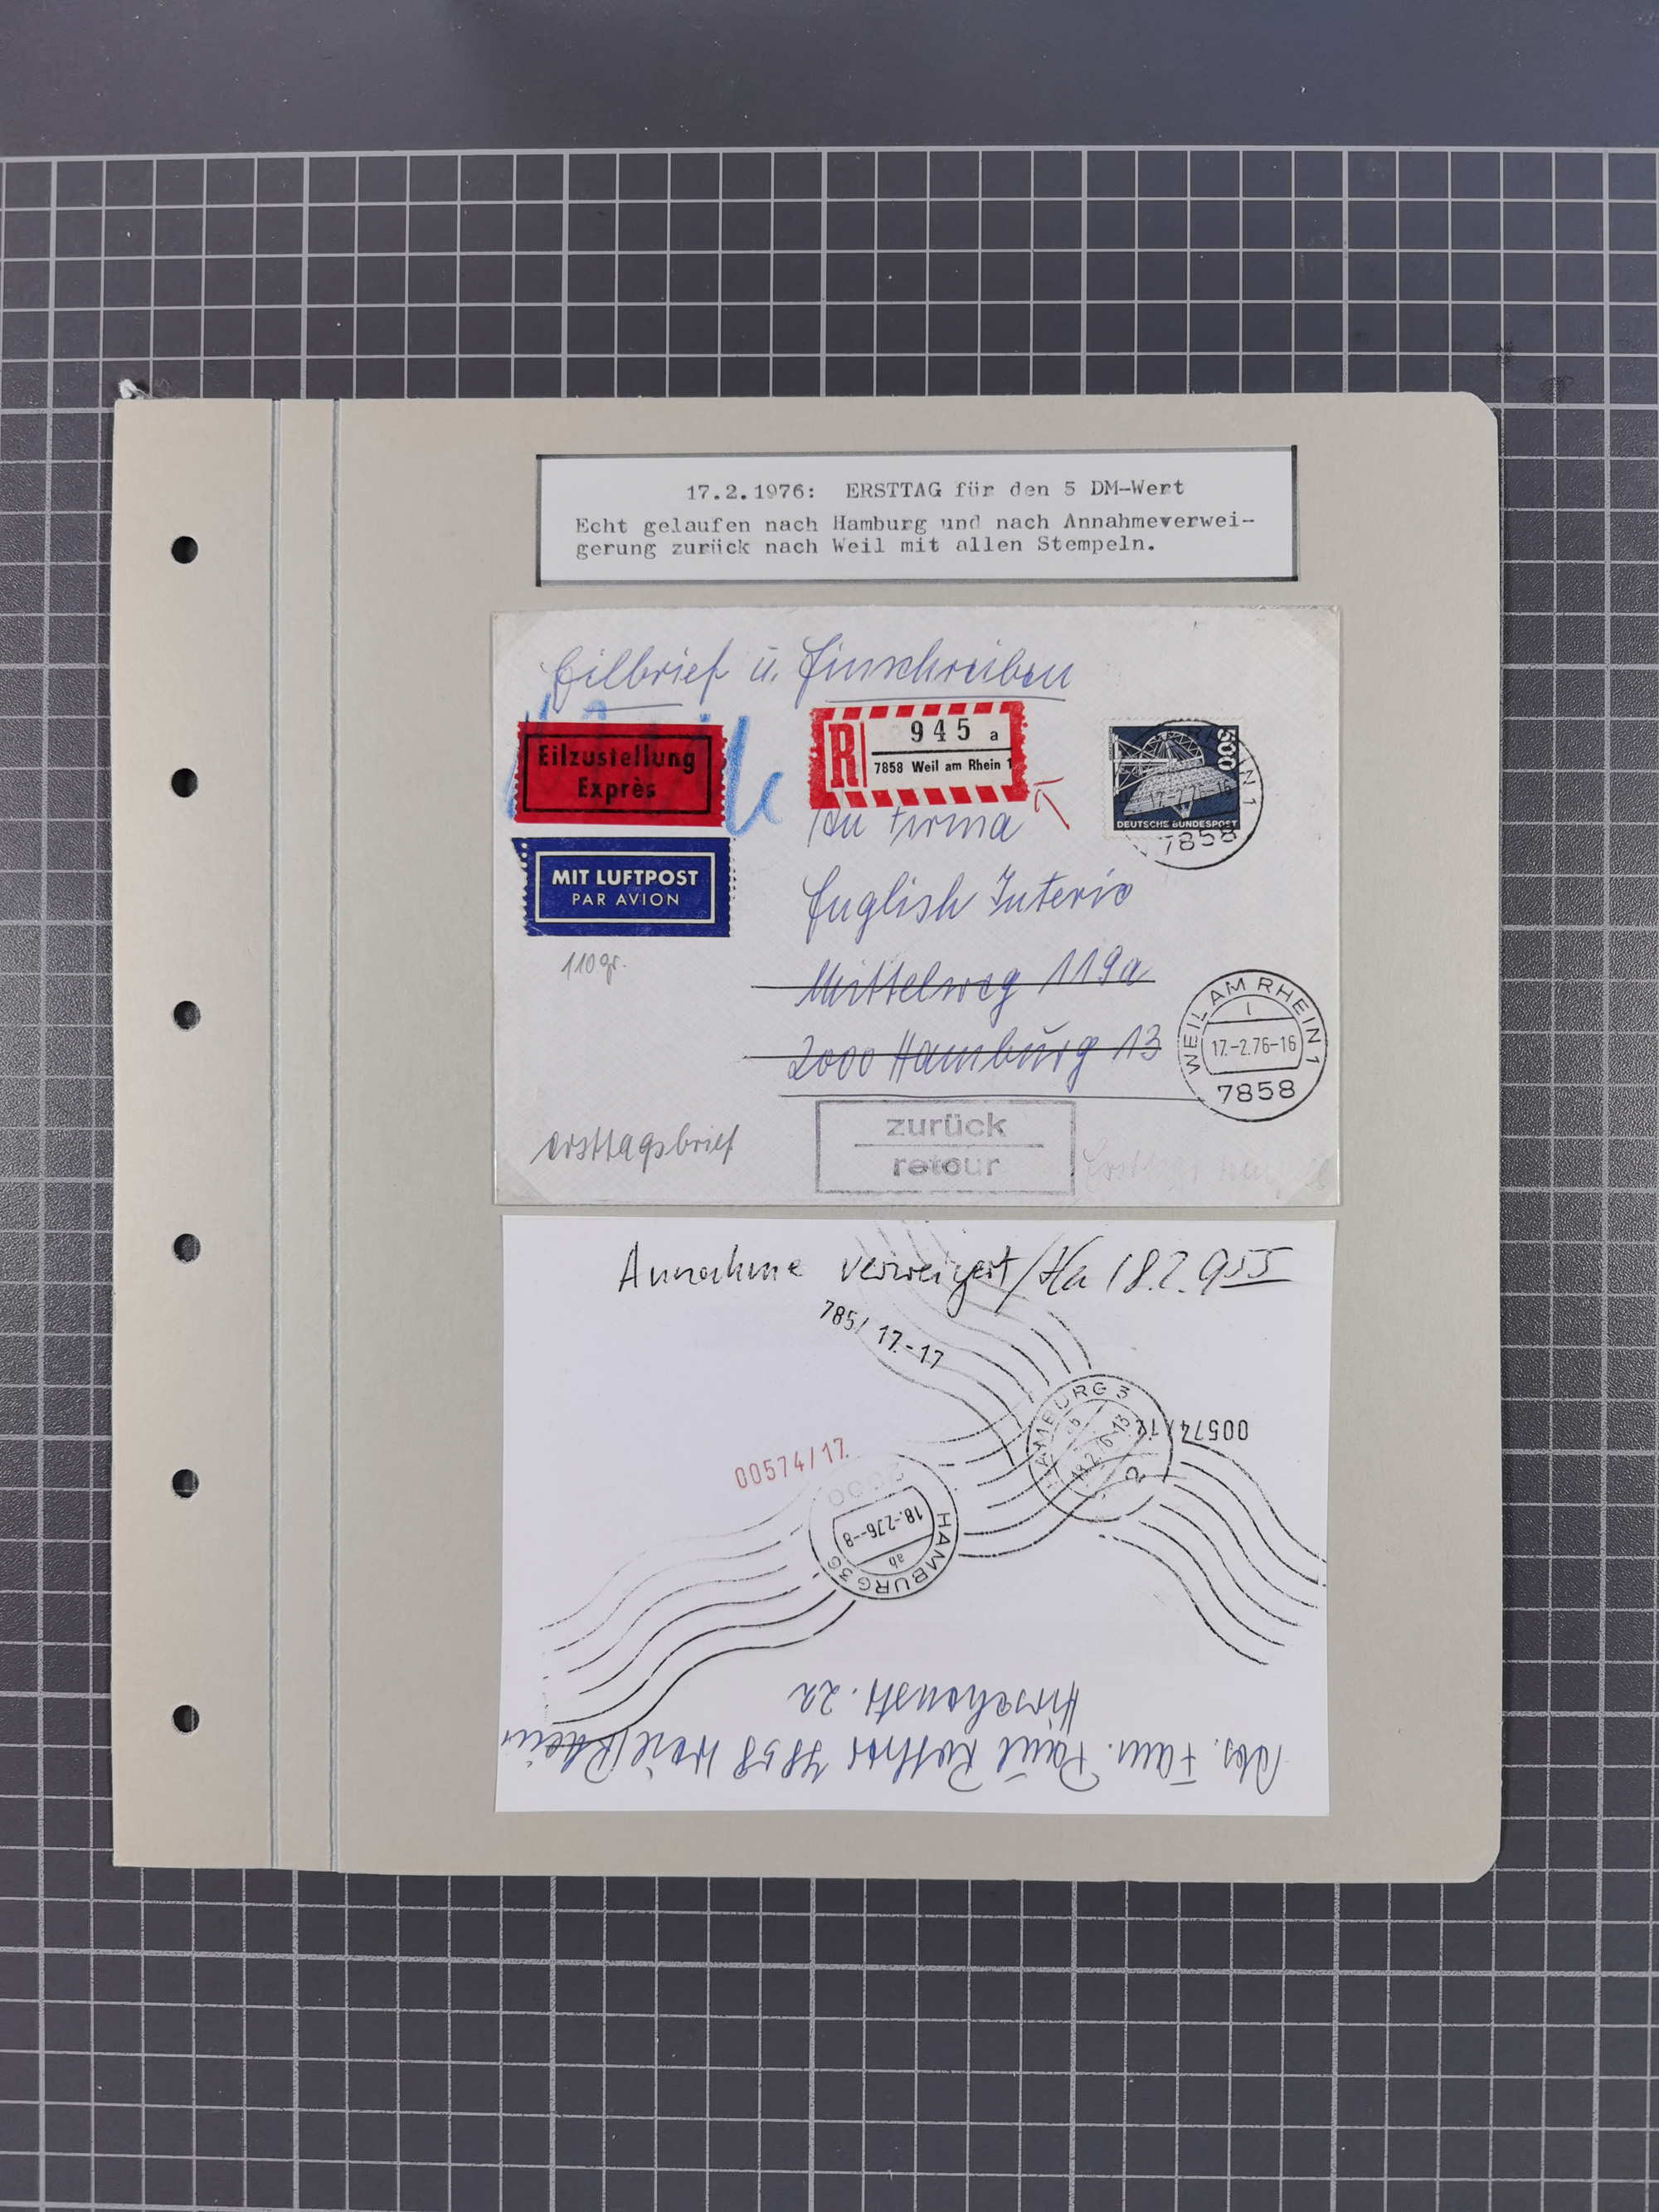 17.2.1976: ERSTTAG für den 5 DM-Wert
Echt gelaufen nach Hamburg und nach Annahmeverwei-
gerung zurück nach Weil mit allen Stempeln.
Eilbrief u. Einschreiben
Eilzustellung
Exprès
R
945 a
7858 Weil am Rhein 1
500
DEUTSCHE BUNDESPOST
17.-2.76-16
7858
MIT LUFTPOST
PAR AVION
110gr.
An Firma
English Interio
Mittelweg 119a
2000 Hamburg 13
WEIL AM RHEIN 1
l
17.-2.76-16
7858
zurück
retour
Ersttagsbrief
Annahme verweigert/Ha 18.2. 955
785/ 17.-17
HAMBURG 3
18.2.76-13
2
00574/17
00574/17.
2000
18.-2.76--8
ab
HAMBURG 36
Hirschenstr. 2a
Abs. Fam. Paul 7858 Weil/Rhein